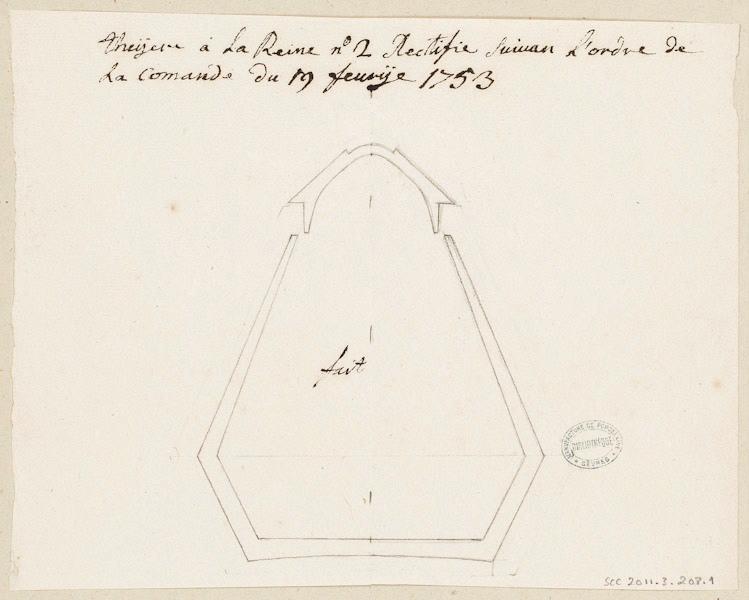 theÿere à La Reine nº 2 Rectifie suivan L'ordre de
La Comande du 19 feurÿe 1753
fait
MANUFACTURE DE PORCELAINE
BIBLIOTHÈQUE
SÈVRES
SCC 2011.3.208.1